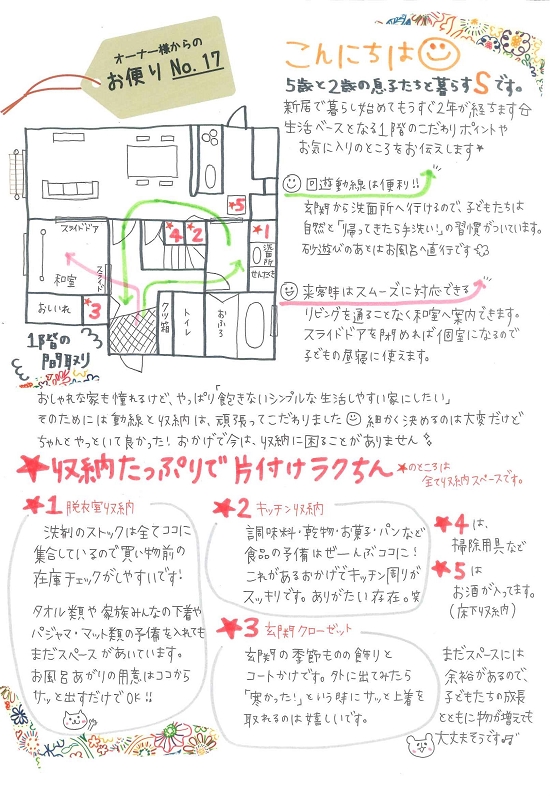 オーナー様からの
お便り No. 17
こんにちは
5歳と2歳の息子たちと暮らすSです。
新居で暮らし始めてもうすぐ2年が経ちます
生活ベースとなる1階のこだわりポイントや
お気に入りのところをお伝えします★
回遊動線は便利!!
玄関から洗面所へ行けるので、子どもたちは
自然と「帰ってきたら手洗い!」の習慣がついています。
砂遊びのあとはお風呂へ直行です
来客時はスムーズに対応できる
リビングを通ることなく和室へ案内できます。
スライドドアを閉めれば個室になるので
子どもの昼寝に使えます。
★5
★4
★2
★1
洗面所
せんたくき
スライドドア
スライド
和室
おしいれ
★3
クツ箱
トイレ
おふろ
1階の
間取り
おしゃれな家も憧れるけど、やっぱり「飽きないシンプルな生活しやすい家にしたい」
そのためには動線と収納は、頑張ってこだわりました 細かく決めるのは大変だけど
ちゃんとやっといて良かった!おかげで今は、収納に困ることがありません
★収納たっぷりで片付けラクちん
★のところは
全て収納スペースです。
★1 脱衣室収納
洗剤のストックは全てココに
集合しているので買い物前の
在庫チェックがしやすいです!
タオル類や家族みんなの下着や
パジャマ・マット類の予備を入れても
まだスペースがあいています。
お風呂あがりの用意はココから
サッと出すだけでOK!!
★2 キッチン収納
調味料・乾物・お菓子・パンなど
食品の予備はぜーんぶココに!
これがあるおかげでキッチン周りが
スッキリです。ありがたい存在。笑
★3 玄関クローゼット
玄関の季節もの飾りと
コートかけです。外に出てみたら
「寒かった!」という時にサッと上着を
取れるのは嬉しいです。
★4は、
掃除用具など
★5は
お酒が入ってます。
(床下収納)
まだスペースには
余裕があるので、
子どもたちの成長
とともに物が増えても
大丈夫そうです♪